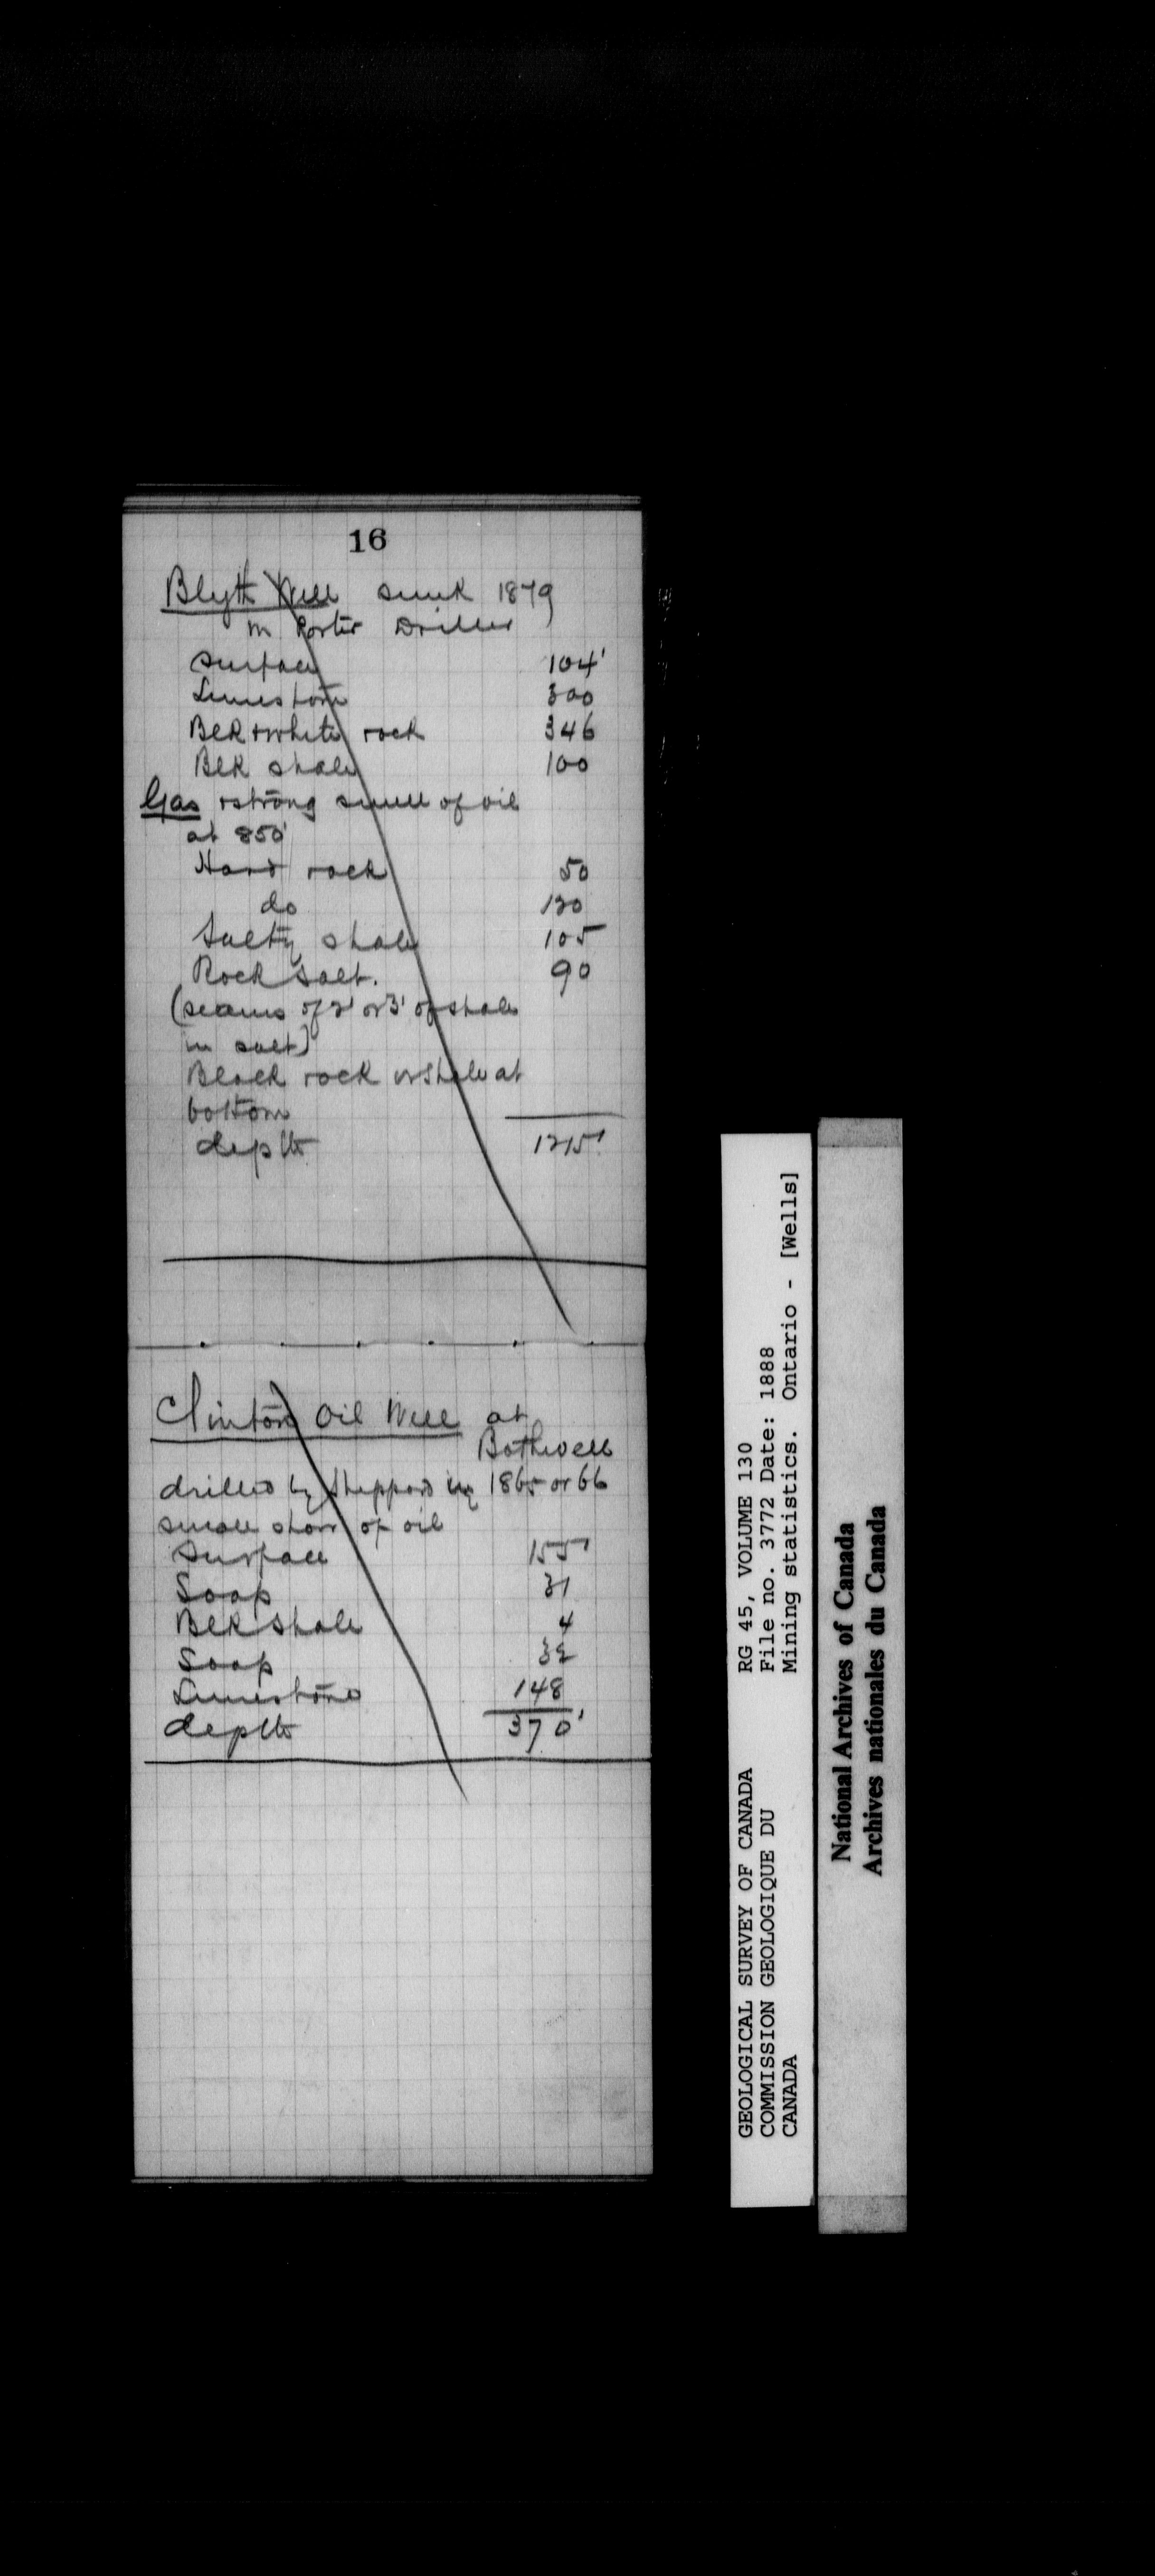 16
Blyth Well sunk 1879
M Porter Driller
Surface 104'
Limestone 300
Blk + white rock 346
Blk shale 100
Gas + strong smell of oil
at 850'
Hard rock 50
do 120
Salty shale 105
Rock salt. 90
(seams of 2' or 3' of shale
in salt)
Black rock or shale at
bottom
depth 1215'
Clinton Oil Well at
Bothwell
drilled by Sheppard in 1865 or 66
small show of oil
Surface 155'
Soap 31
Blk shale 4
Soap 32
Limestone 148
depth 370'
GEOLOGICAL SURVEY OF CANADA RG 45, VOLUME 130
COMMISSION GEOLOGIQUE DU File no. 3772 Date: 1888
CANADA Mining statistics. Ontario - [Wells]
National Archives of Canada
Archives nationales du Canada